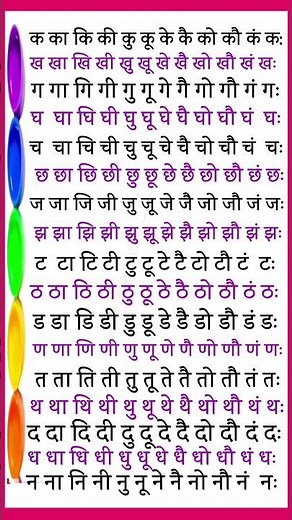 क का कि की कु कू के कै को कौ कं कः
ख खा खि खी खु खू खे खै खो खौ खं खः
ग गा गि गी गु गू गे गै गो गौ गं गः
घ घा घि घी घु घू घे घै घो घौ घं घः
च चा चि ची चु चू चे चै चो चौ चं चः
छ छा छि छी छु छू छे छै छो छौ छं छः
ज जा जि जी जु जू जे जै जो जौ जं जः
झ झा झि झी झु झू झे झै झो झौ झं झः
ट टा टि टी टु टू टे टै टो टौ टं टः
ठ ठा ठि ठी ठु ठू ठे ठै ठो ठौ ठं ठः
ड डा डि डी डु डू डे डै डो डौ डं डः
ण णा णि णी णु णू णे णै णो णौ णं णः
त ता ति ती तु तू ते तै तो तौ तं तः
थ था थि थी थु थू थे थै थो थौ थं थः
द दा दि दी दु दू दे दै दो दौ दं दः
ध धा धि धी धु धू धे धै धो धौ धं धः
न ना नि नी नु नू ने नै नो नौ नं नः